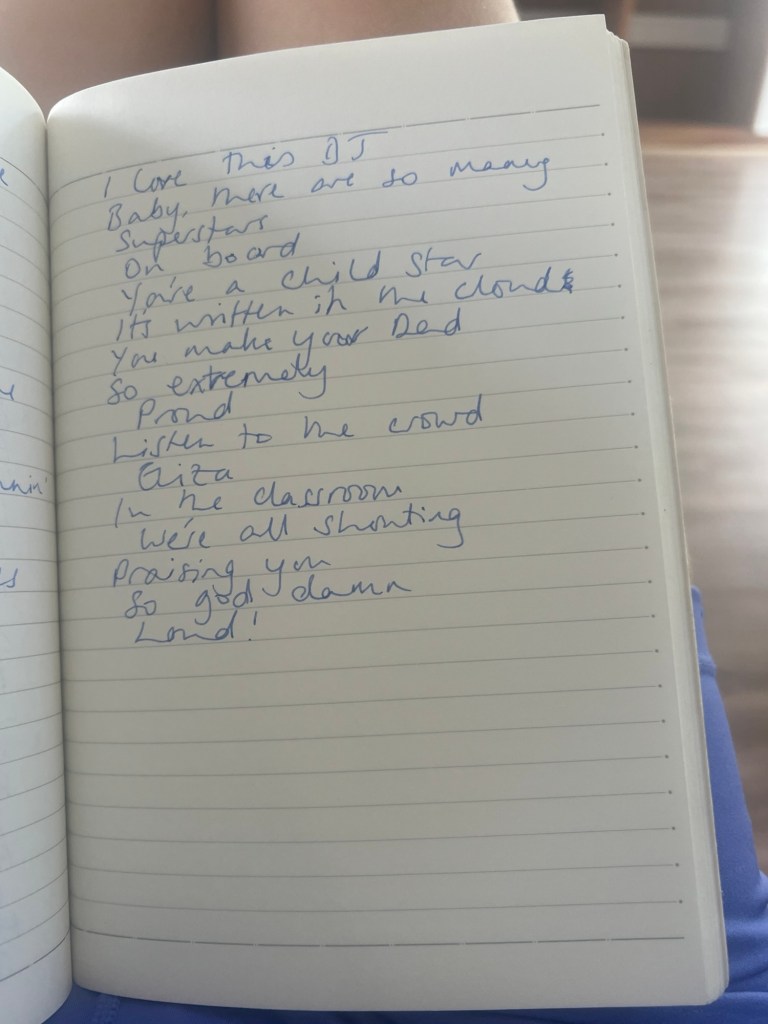 I love this DJ
Baby, there are so many
Superstars
On board
You're a child star
It's written in the clouds
You make your Dad
So extremely
Proud
Listen to the crowd
Giza
In the classroom
We're all shouting
Praising you
So god damn
Loud!